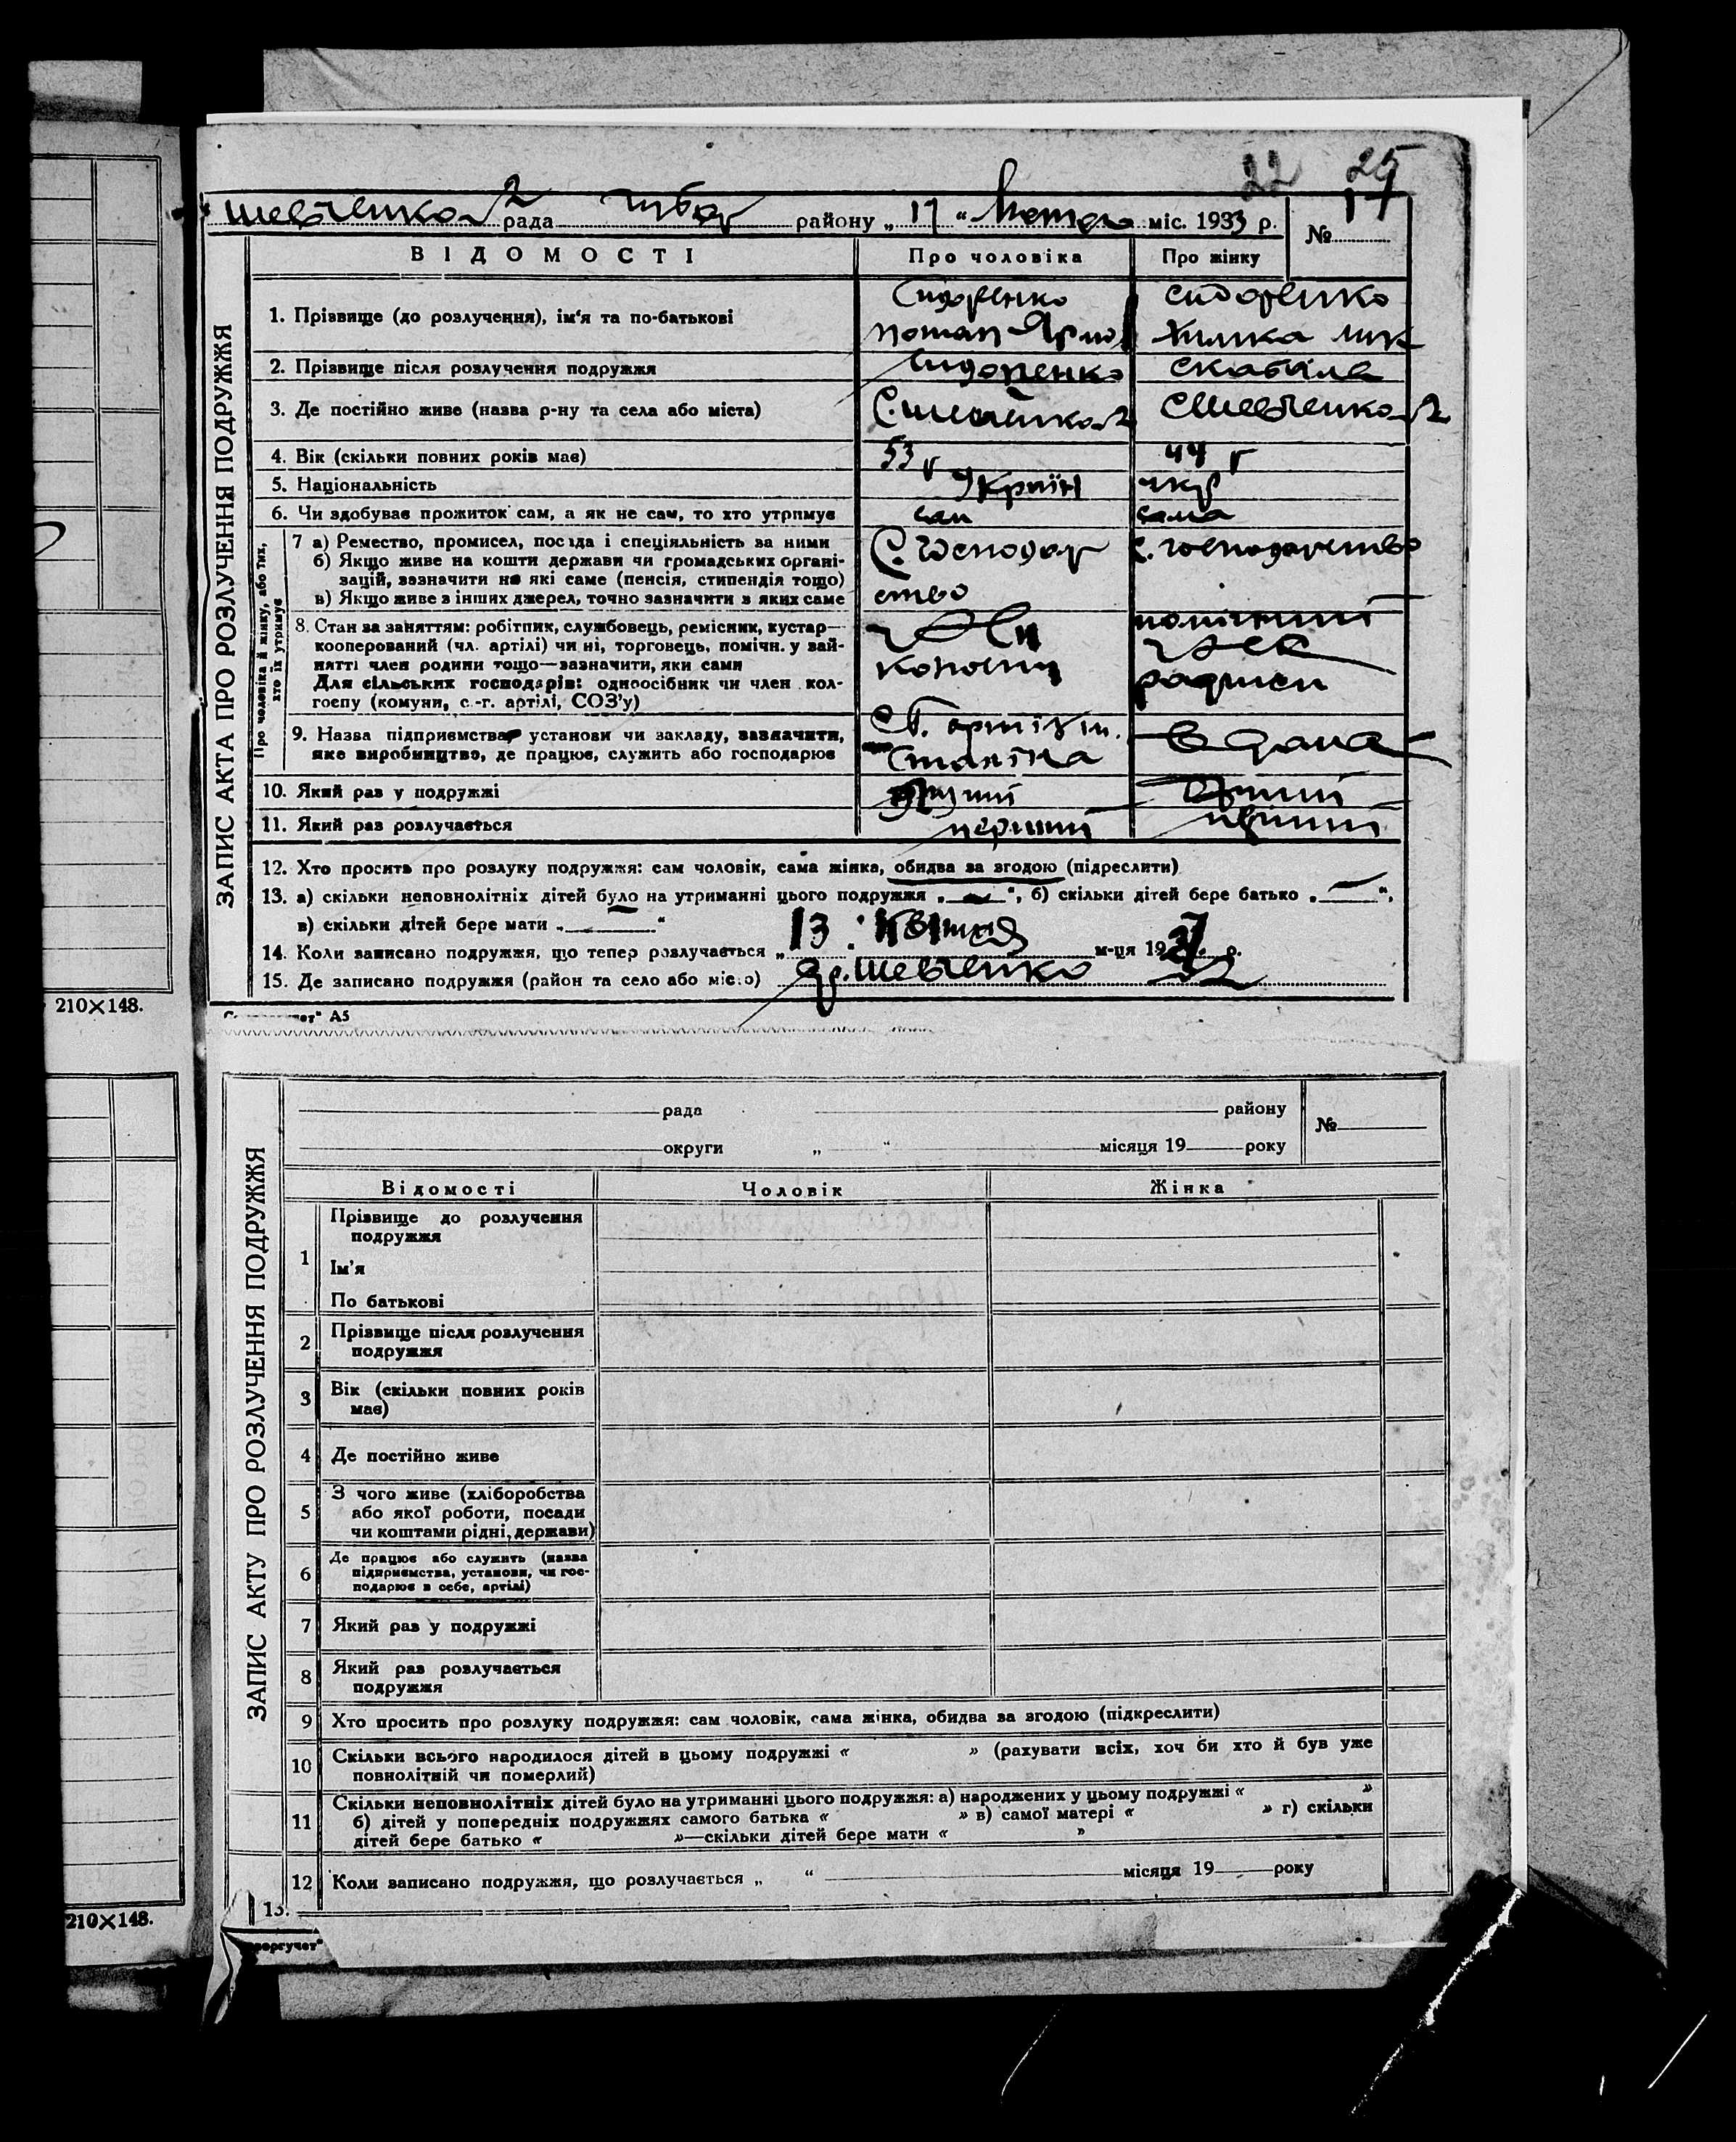 22 25
Шевченко 2 рада район „ 17 “ Лютого міс. 1933 р. № 17
ВІДОМОСТІ Про чоловіка Про жінку
ЗАПИС АКТА ПРО РОЗЛУЧЕННЯ ПОДРУЖЖЯ
1. Прізвище (до розлучення), ім'я та по-батькові Сидоренко Сидоренко
Потап
2. Прізвище після розлучення подружжя Сидоренко
3. Де постійно живе (назва р-ну та села або міста) С. Шевченко 2 С Шевченко 2
4. Вік (скільки повних років має) 53 г 44 г
5. Національність Україн укр
6. Чи здобуває прожиток сам, а як не сам, то хто утримує сам сама
Про чоловіка й жінку, або тих,
хто їх утримує
7 а) Ремество, промисел, посада і спеціяльність за ними С. Господар С. господарство
б) Якщо живе на кошти держави чи громадських органі-
зацій, зазначити на які саме (пенсія, стипендія тощо)
в) Якщо живе з інших джерел, точно зазначити з яких саме ство
8. Стан за заняттям: робітник, службовець, ремісник, кустар—
кооперований (чл. артілі) чи ні, торговець, помічн. у зай-
нятті член родини тощо—зазначити, яки сами
Для сільських господарів: одноосібник чи член кол-
госпу (комуни, с.-г. артілі, СОЗ'у)
9. Назва підприємства, установи чи закладу, зазначити,
яке виробництво, де працює, служить або господарює Сталіна
10. Який раз у подружжі другий
11. Який раз розлучається перший
12. Хто просить про розлуку подружжя: сам чоловік, сама жінка, обидва за згодою (підреслити)
13. а) скільки неповнолітніх дітей було на утриманні цього подружжя „ — “, б) скільки дітей бере батько „ — “,
в) скільки дітей бере мати „ “
14. Коли записано подружжя, що тепер розлучається „ 13 . квітня м-ця 19 р.
15. Де записано подружжя (район та село або місто) Шевченко 2
210×148. А5
рада району №
округи „ “ місяця 19 року
ЗАПИС АКТУ ПРО РОЗЛУЧЕННЯ ПОДРУЖЖЯ
Відомості Чоловік Жінка
Прізвище до розлучення
подружжя
1
Ім'я
По батькові
2 Прізвище після розлучення
подружжя
3 Вік (скільки повних років
має)
4 Де постійно живе
5 З чого живе (хліборобства
або якої роботи, посади
чи коштами рідні, держави)
6 Де працює або служить (назва
підприємства, установи, чи гос-
подарює в себе, артілі)
7 Який раз у подружжі
8 Який раз розлучається
подружжя
9 Хто просить про розлуку подружжя: сам чоловік, сама жінка, обидва за згодою (підкреслити)
10 Скільки всього народилося дітей в цьому подружжі « » (рахувати всіх, хоч би хто й був уже
повнолітній чи померлий)
11 Скільки неповнолітніх дітей було на утриманні цього подружжя: а) народжених у цьому подружжі « »
б) дітей у попередніх подружжях самого батька « » в) самої матері « » г) скільки
дітей бере батько « »—скільки дітей бере мати « »
12 Коли записано подружжя, що розлучається „ “ місяця 19 року
13.
210×148.